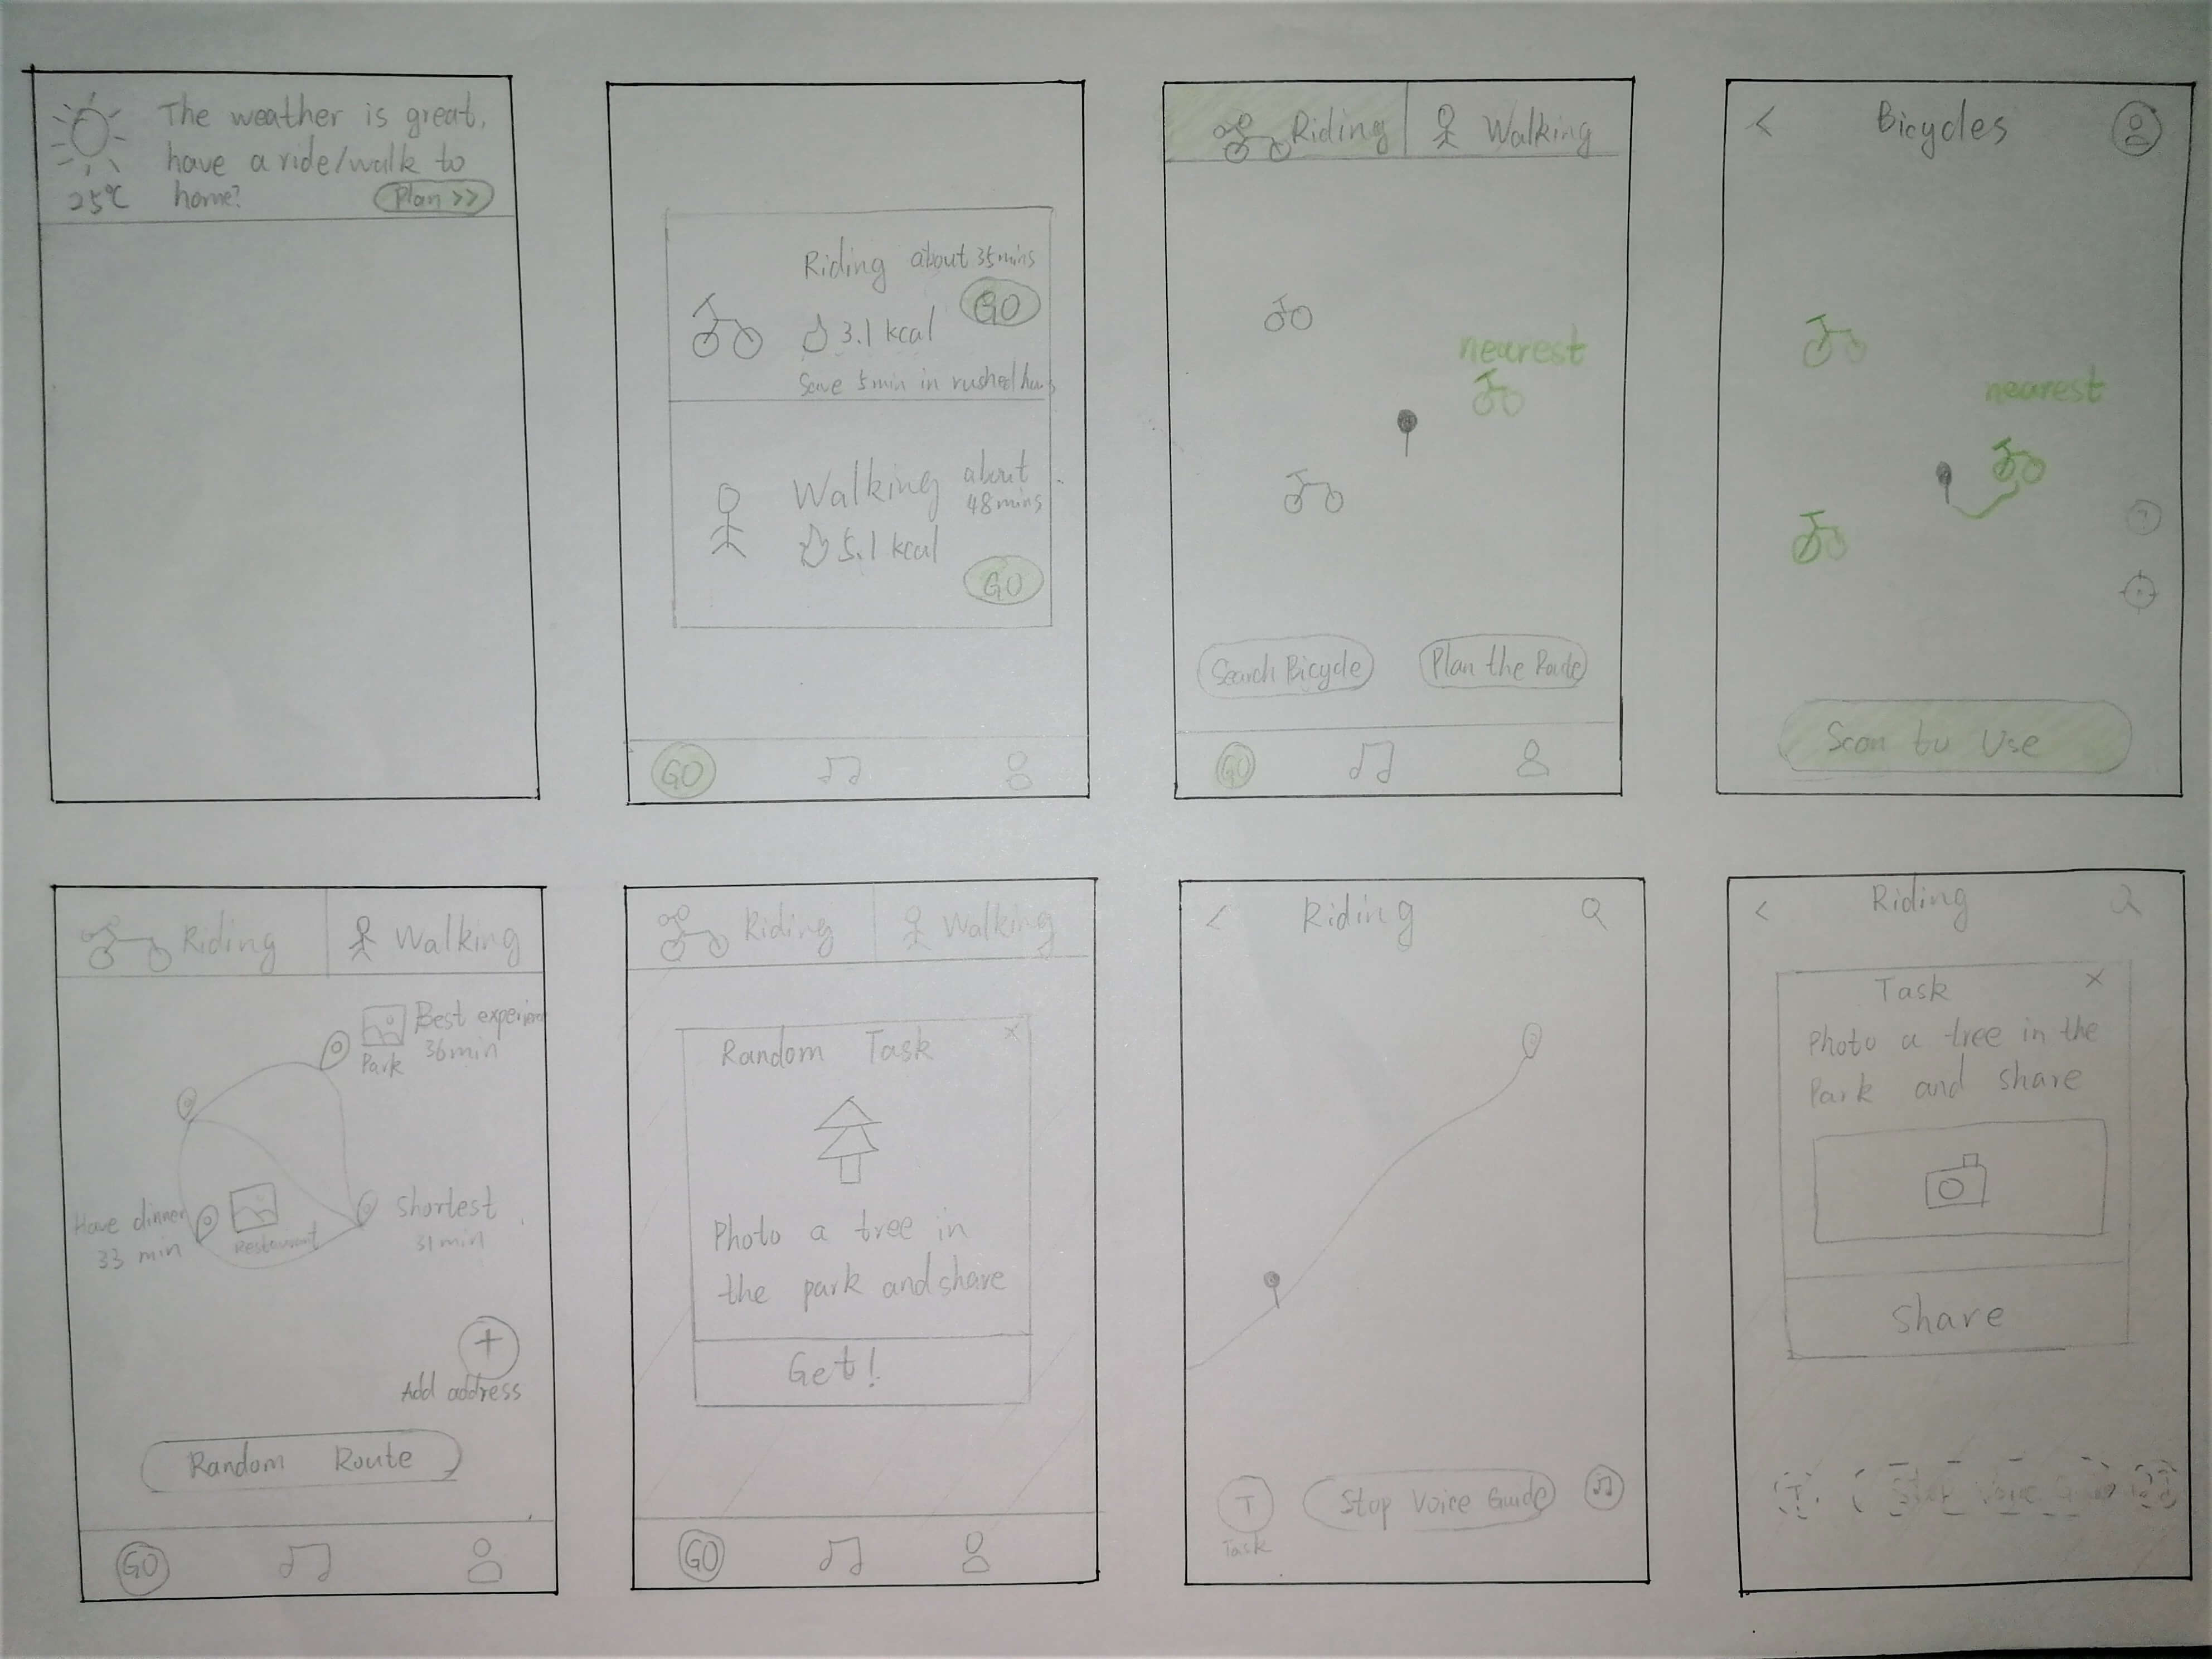 The weather is great,
have a ride/walk to
25°C home?
Plan >>
Riding about 35mins
GO
3.1 kcal
Save 5min in rushed
Walking about
48mins
5.1 kcal
GO
GO
Riding
Walking
nearest
Search Bicycle
Plan the Route
GO
<
Bicycles
nearest
Scan to Use
Riding
Walking
Best
36min
Park
Have dinner
33 min
Restaurant
shortest
31min
+
Add address
Random Route
GO
Riding
Walking
Random Task
×
Photo a tree in
the park and share
Get!
GO
<
Riding
T
Task
Stop Voice Guide
<
Riding
Task
×
Photo a tree in the
Park and share
Share
T